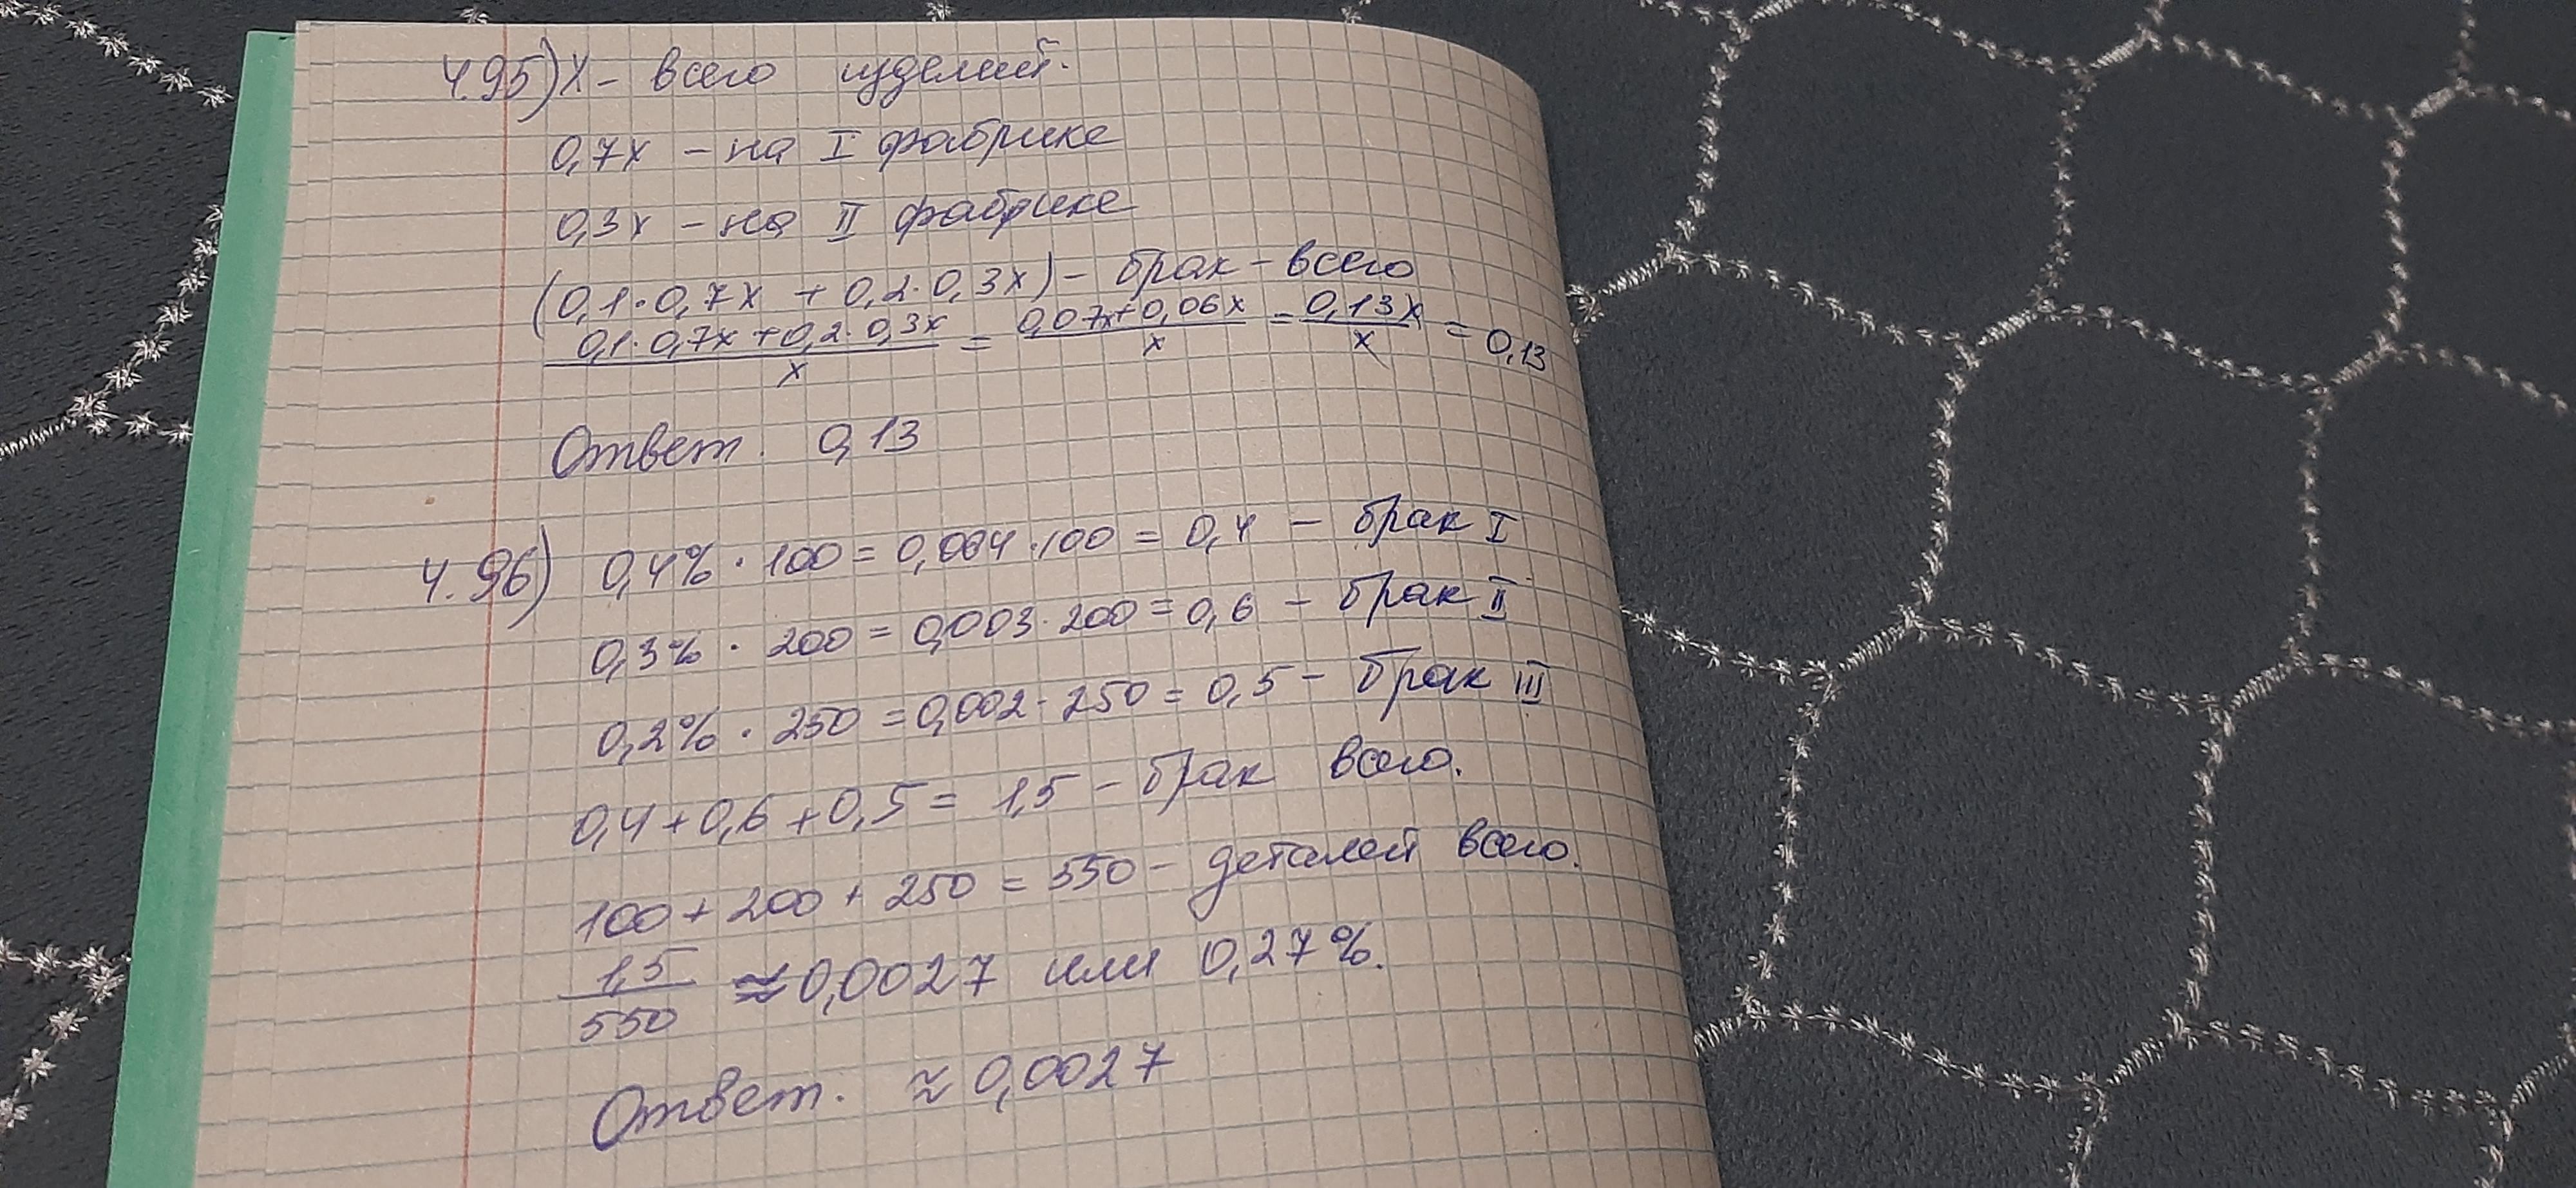 4.95) x - всего изделий.
0,7x - на I фабрике
0,3x - на II фабрике
(0,1·0,7x + 0,2·0,3x) - брак - всего
(0,1·0,7x + 0,2·0,3x)/x = (0,07x + 0,06x)/x = 0,13x/x = 0,13
Ответ. 0,13
4.96) 0,4% · 100 = 0,004 · 100 = 0,4 - брак I
0,3% · 200 = 0,003 · 200 = 0,6 - брак II
0,2% · 250 = 0,002 · 250 = 0,5 - брак III
0,4 + 0,6 + 0,5 = 1,5 - брак всего.
100 + 200 + 250 = 550 - деталей всего.
1,5/550 ≈ 0,0027 или 0,27%.
Ответ. ≈ 0,0027